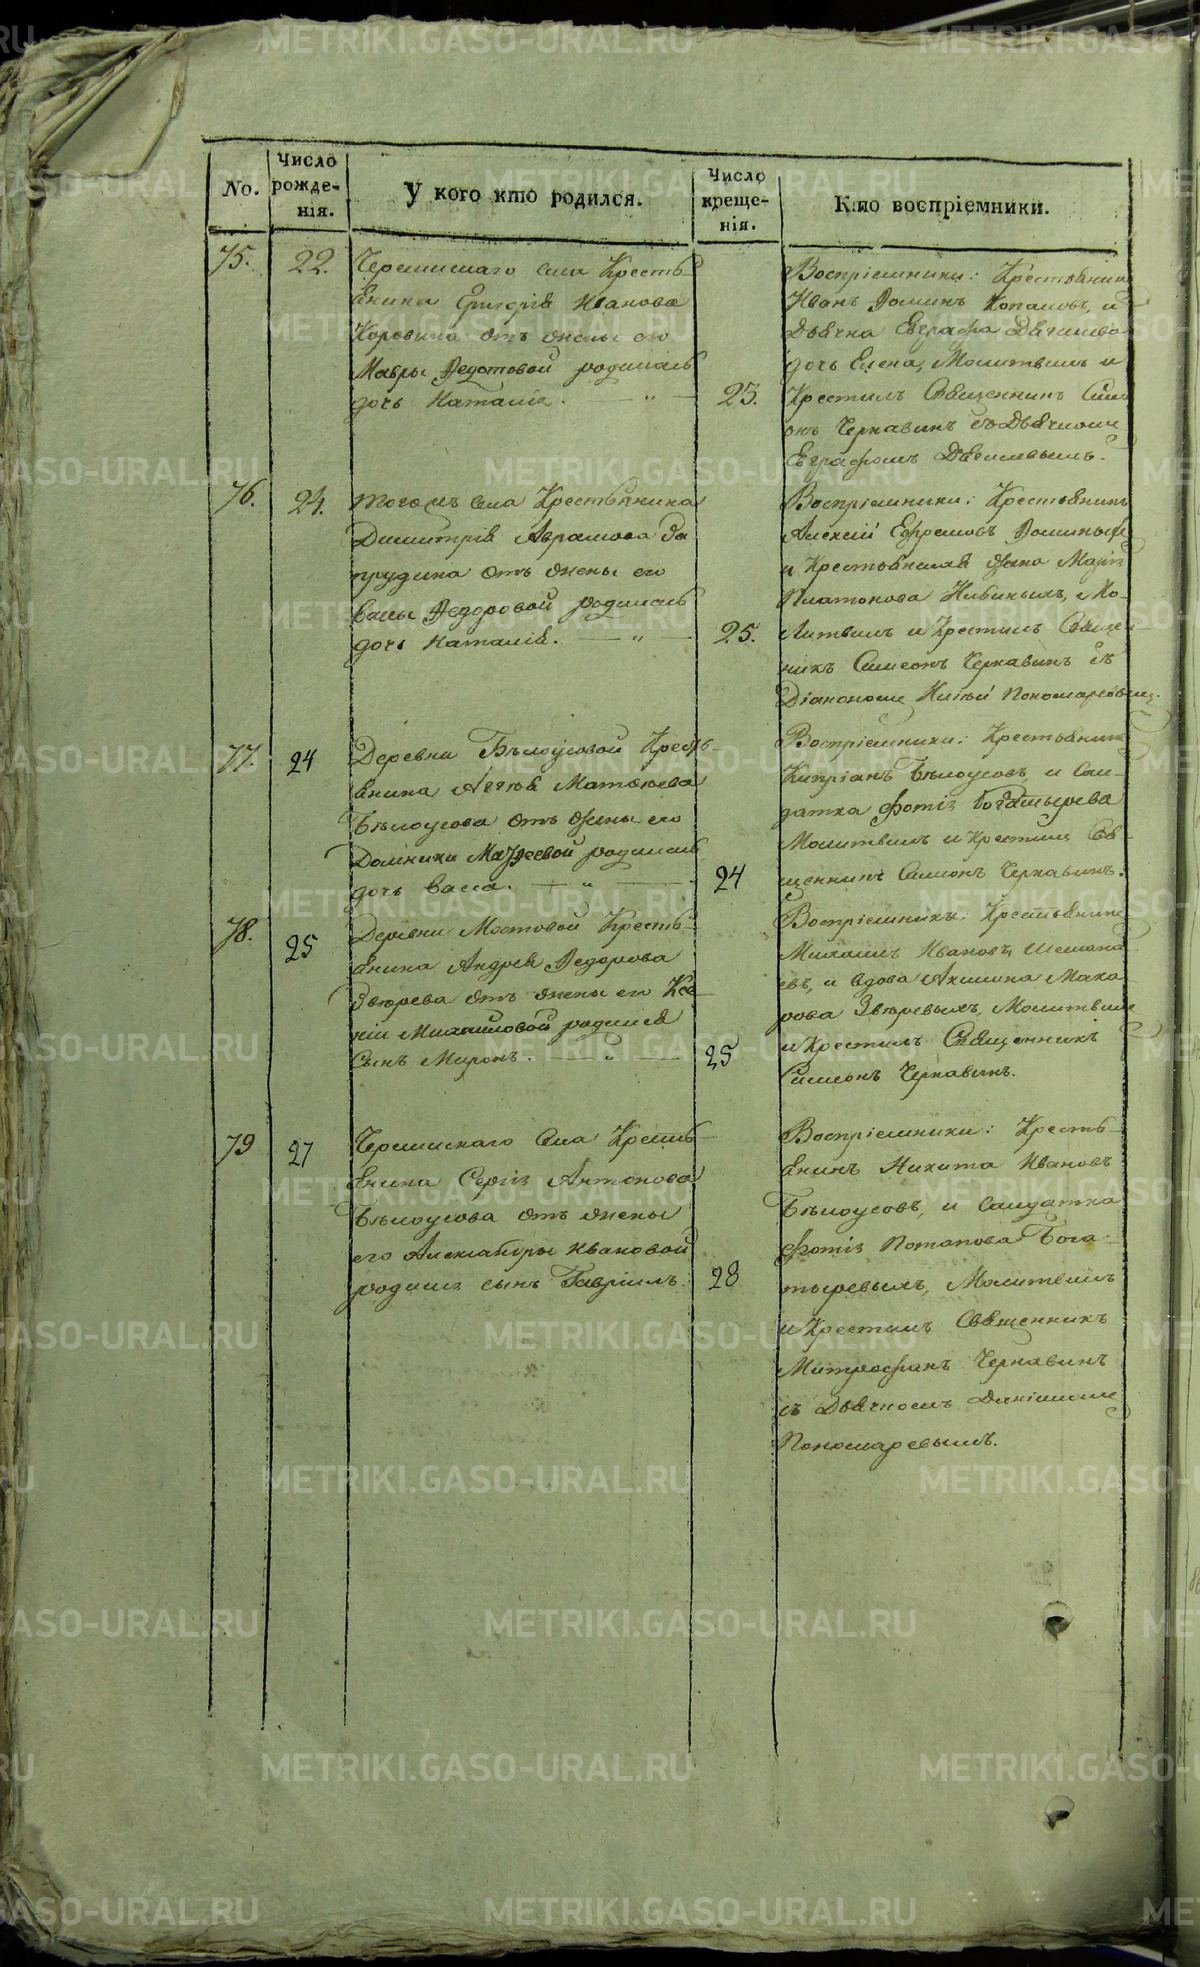 No.
Число рожде-нія.
У кого кто родился.
Число креще-нія.
Кто воспріемники.
75.
22.
Черемискаго села Кресть
янина Григорія Иванова
Коровина отъ жены его
Мавры Ѳедотовой родилась
дочь Наталія.
23.
Воспріемники: Крестьянинъ
Иванъ Ѳоминъ Копаловъ, и
Дьячка Евграфа
дочь Елена, Молитвилъ и
Крестилъ Священникъ Сим
онъ Чернавинъ съ Дьячкомъ
Евграфомъ
76.
24.
Тогожъ села Крестьянина
Димитрія Аврамова За
прудина отъ жены его
Вассы Ѳедоровой родилась
дочь Наталія.
25.
Воспріемники: Крестьянинъ
Алексій Ефремовъ Ѳоминыхъ
и Крестьянская жена Марія
Платонова
литвилъ и Крестилъ Священ
никъ Симеонъ Чернавинъ съ
Діакономъ Пономаревымъ.
77.
24
Деревни Бѣлоусовой Кресть-
янина Матѳеева
Бѣлоусова отъ жены его
Домники родилась
дочь Васса.
24
Воспріемники: Крестьянинъ
Кипріанъ Бѣлоусовъ, и Сол-
датка Фотія Богатырева
Молитвилъ и Крестилъ Свя-
щенникъ Симеонъ Чернавинъ.
78.
25
Деревни Мостовой Кресть-
янина Андрея Ѳедорова
Звѣрева отъ жены его Ксе-
ніи Михайловой родился
Сынъ Миронъ.
25
Воспріемники: Крестьянинъ
Михаилъ Ивановъ
евъ, и вдова Акилина Мака
рова Звѣревыхъ, Молитвилъ
и Крестилъ Священникъ
Симеонъ Чернавинъ.
79
27
Черемискаго Села Кресть-
янина Сергія Антонова
Бѣлоусова отъ жены
его Александры Ивановой
родился сынъ Гавріилъ.
28
Воспріемники: Кресть-
янинъ Никита Ивановъ
Бѣлоусовъ, и Солдатка
Фотія Потапова Бога-
тыревыхъ, Молитвилъ
и Крестилъ Священникъ
Митрофанъ Чернавинъ
съ Дьячкомъ
Пономаревымъ.
METRIKI.GASO-URAL.RU